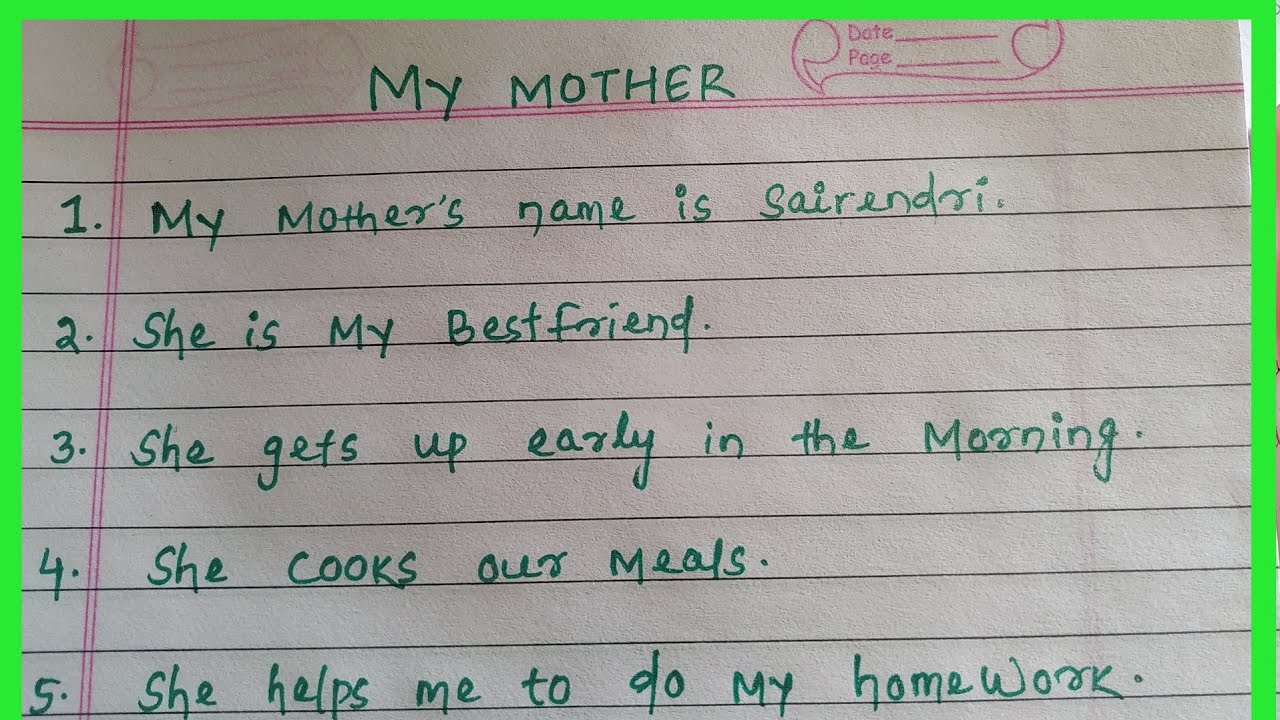 Date
Page
My MOTHER
1. My Mother's name is Sairendri.
2. She is My Bestfriend.
3. She gets up early in the Morning.
4. She cooks our Meals.
5. She helps me to do My homeWork.